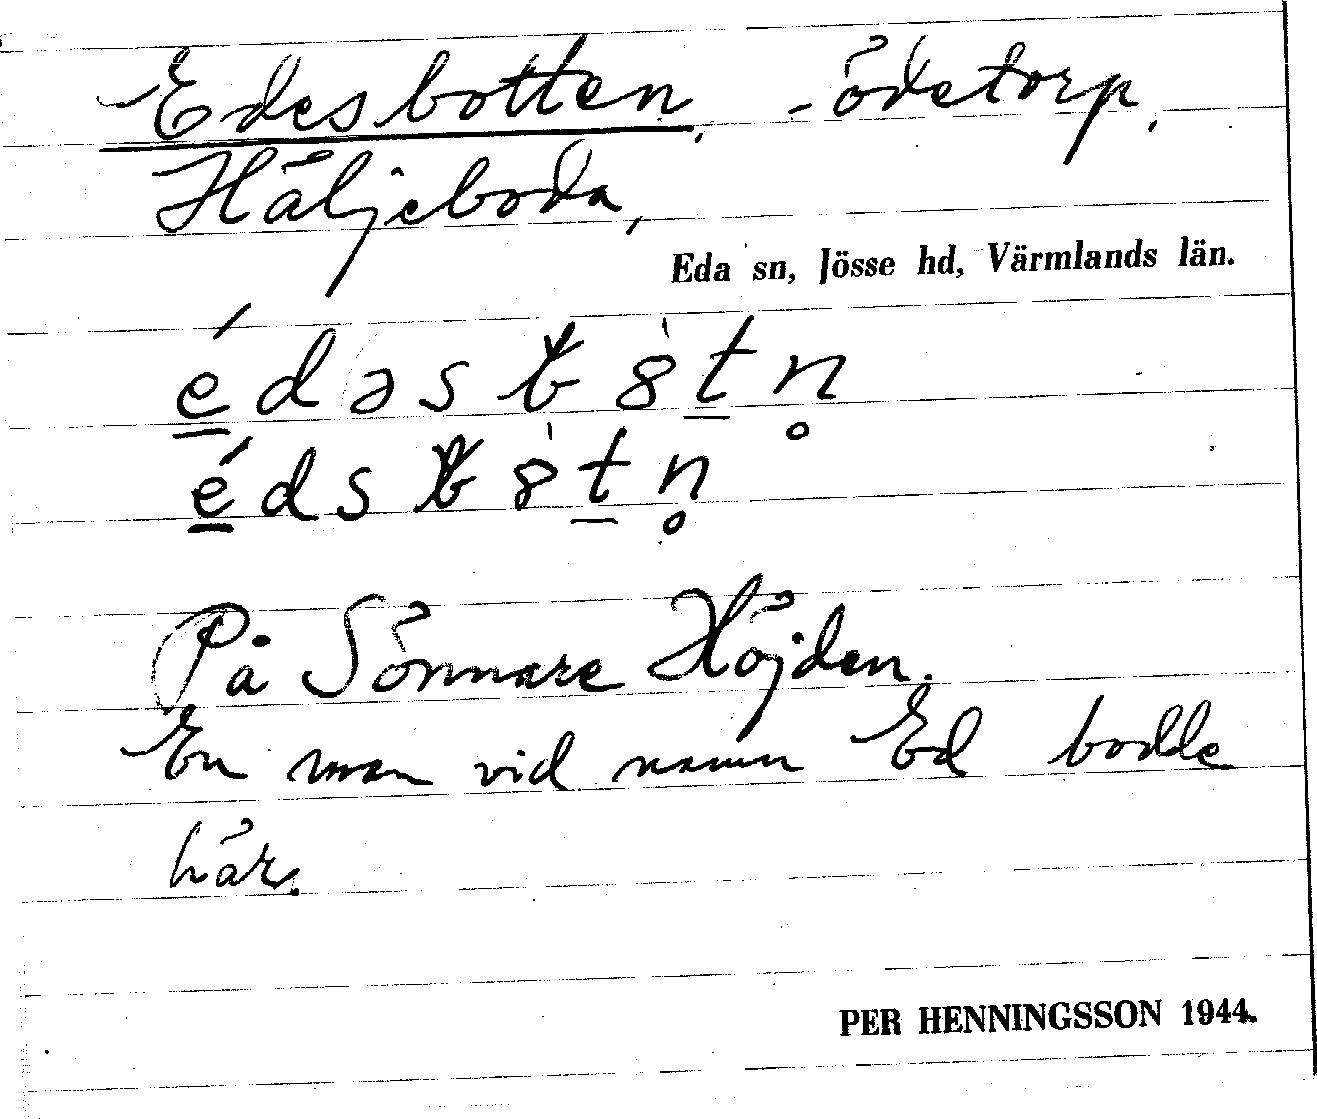 Edesbotten, - ödetorp.
Häljeboda,
Eda sn, Jösse hd, Värmlands län.
édəsb8̀tn̥
édsb8̀tn̥
På Sönnare Höjden.
En man vid namn Ed bodde
här.
PER HENNINGSSON 1944.